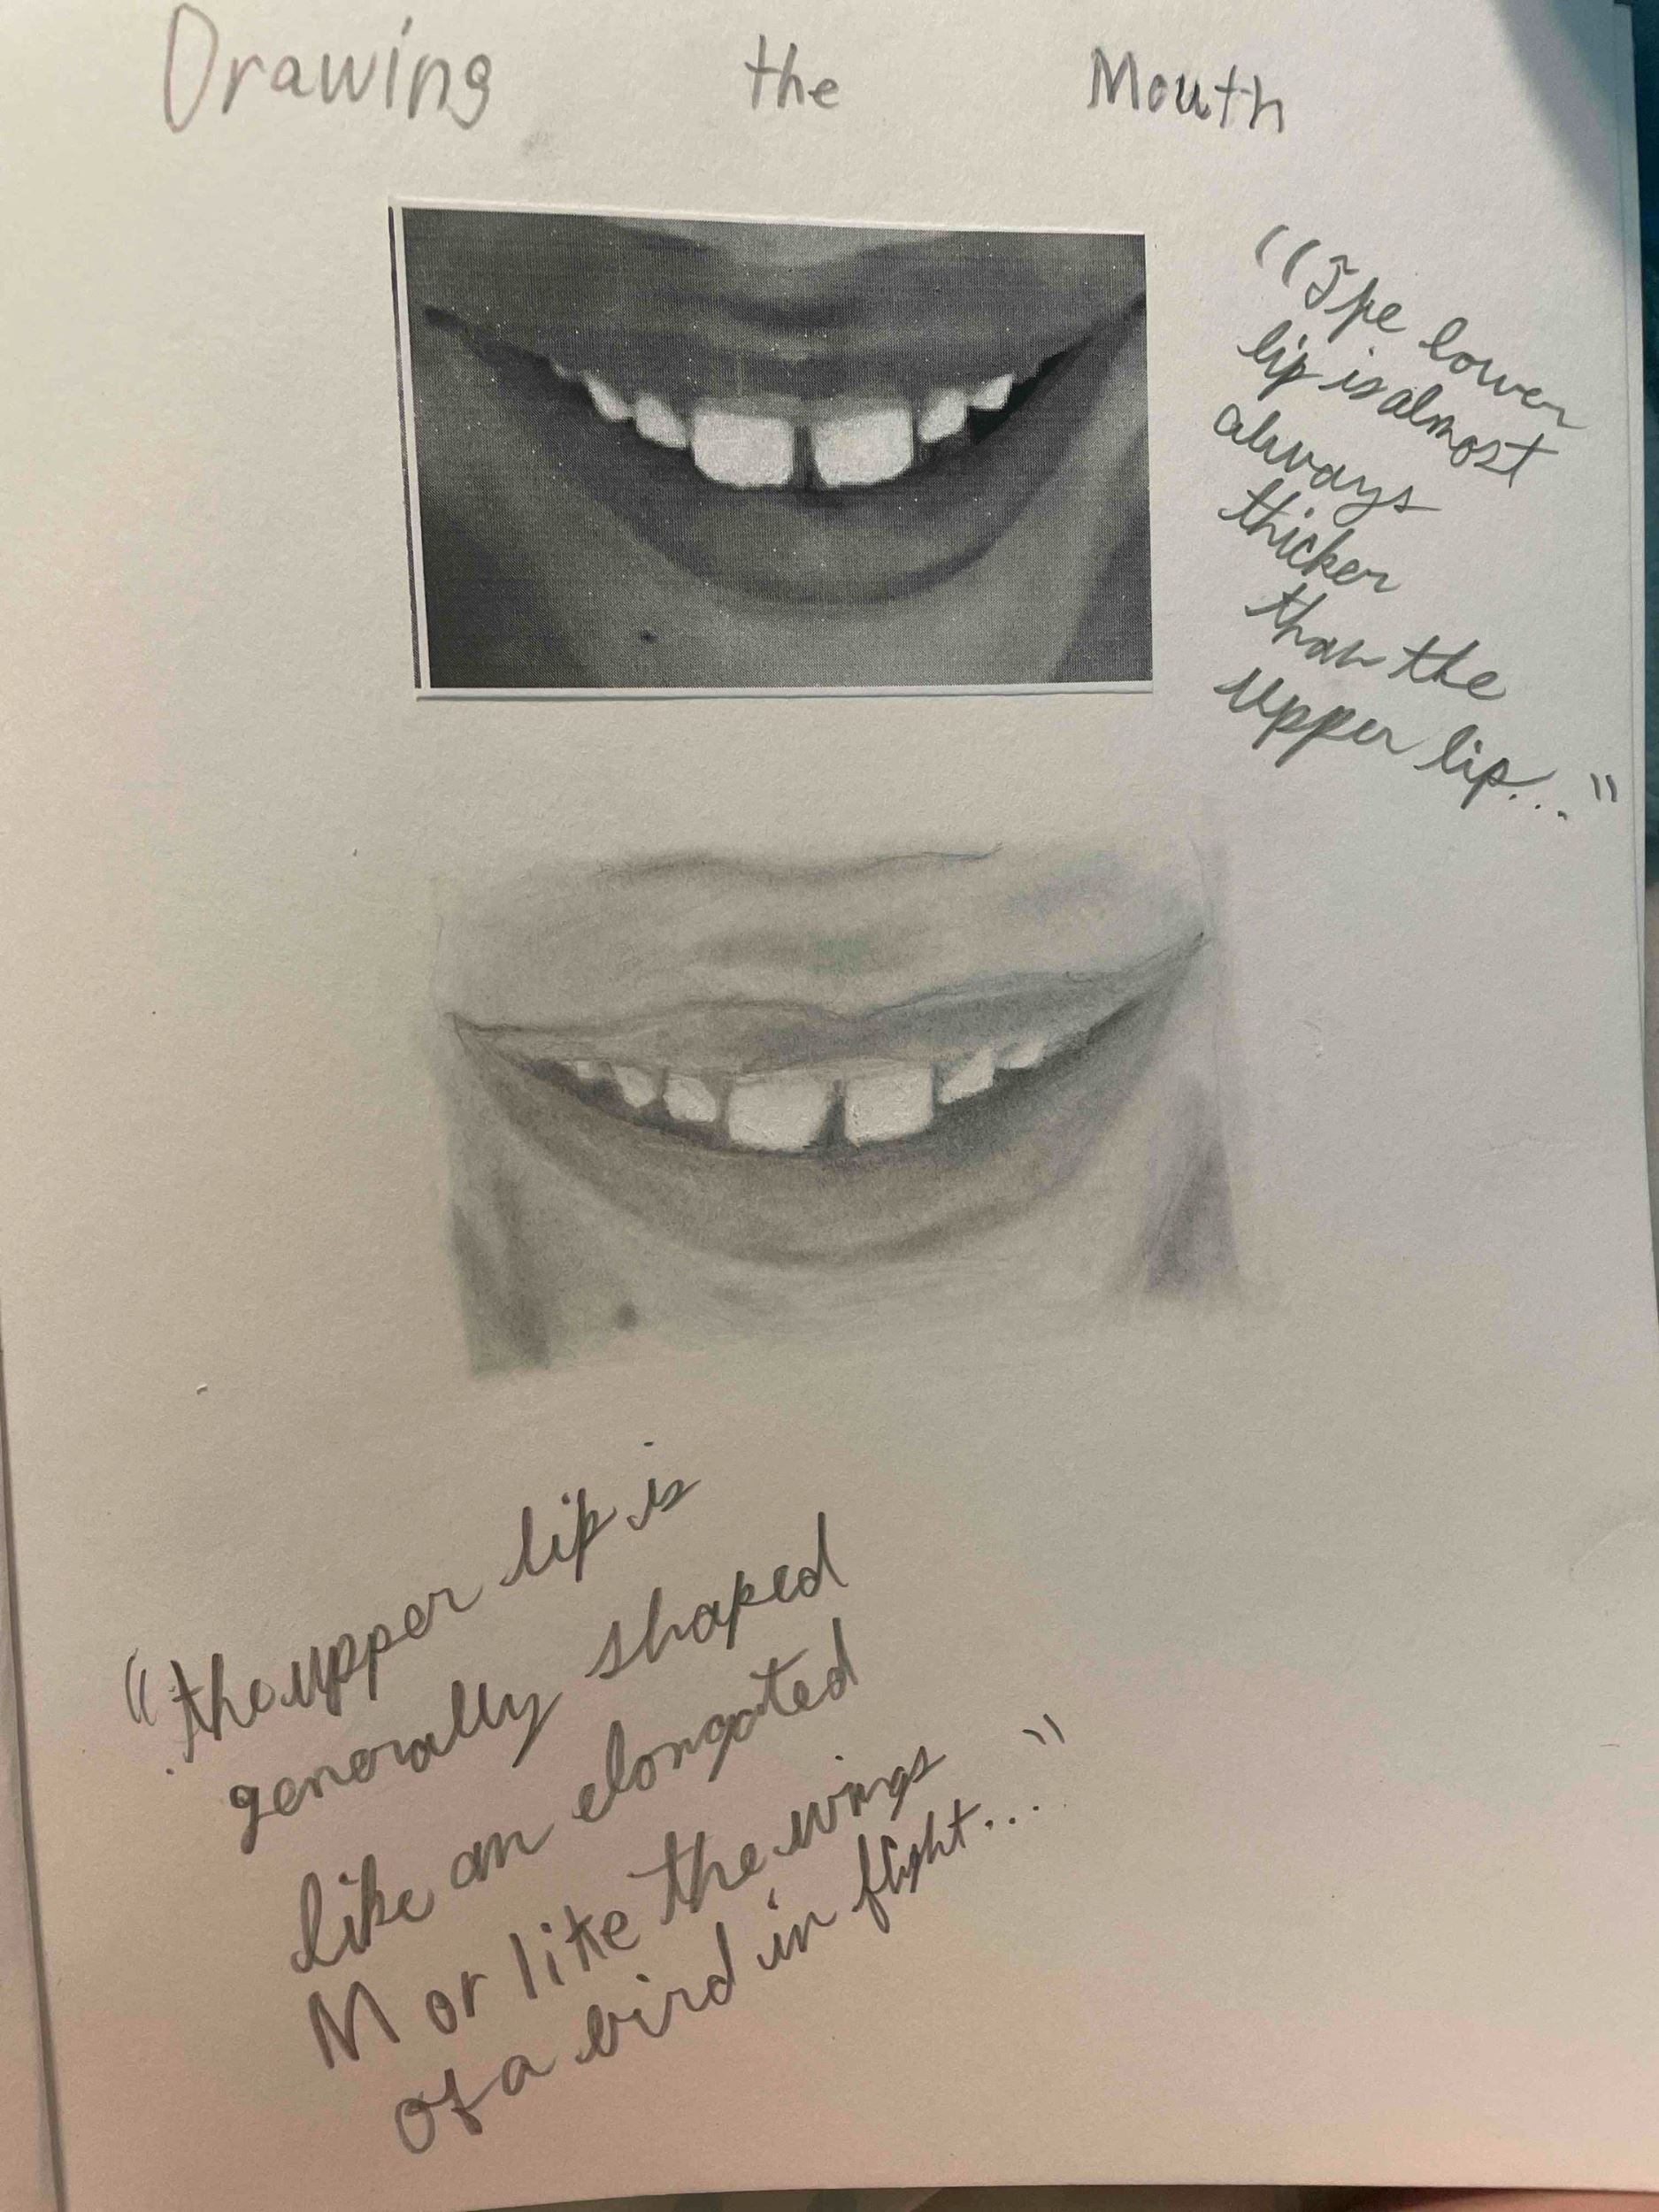 Drawing the Mouth
"The lower
lip is almost
always
thicker
than the
upper lip..."
"the upper lip is
generally shaped
like an elongated
M or like the wings
of a bird in flight..."